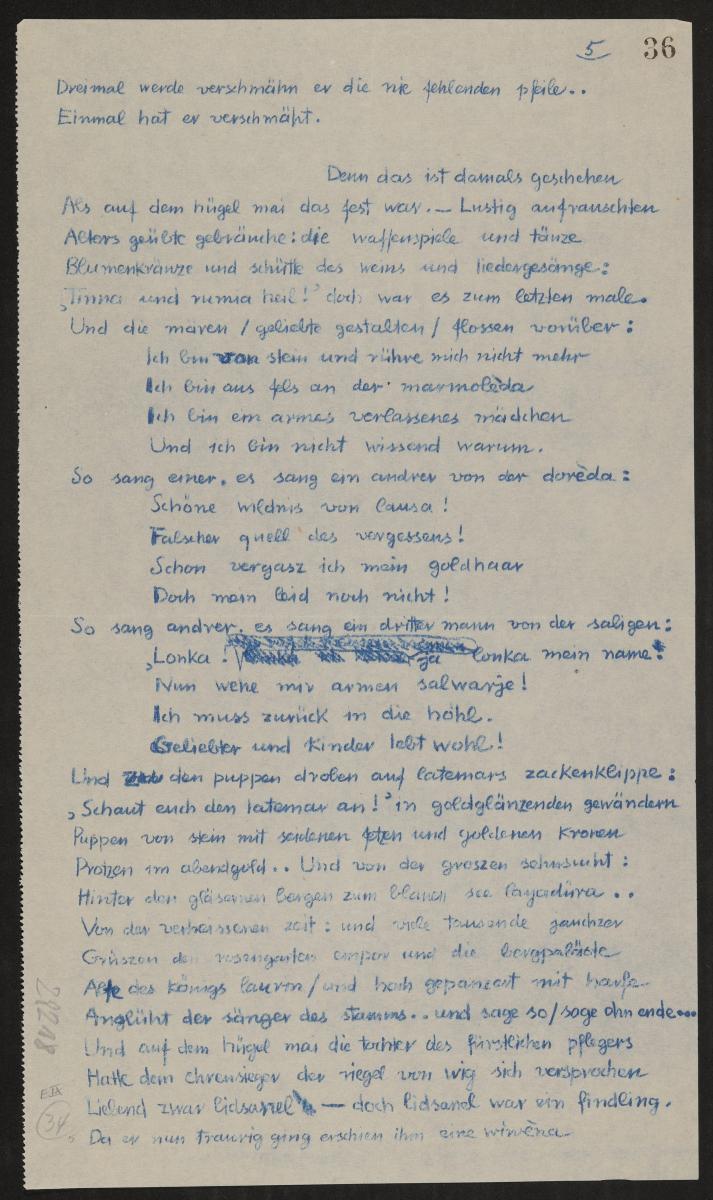 5 36
Dreimal werde verschmähn er die nie fehlenden pfeile..
Einmal hat er verschmäht.
Denn das ist damals geschehen
Als auf dem hügel mai das fest war.— Lustig aufrauschten
Alters geübte gebräuche: die waffenspiele und tänze
Blumenkränze und schütte des weins und liedergesänge:
‚Tinna und rumia heil!' doch war es zum letzten male.
Und die mären / geliebte gestalten / flossen vorüber:
Ich bin von stein und rühre mich nicht mehr
Ich bin aus fels an der marmolèda
Ich bin ein armes verlassenes mädchen
Und ich bin nicht wissend warum.
So sang einer. es sang ein andrer von der dorèda:
Schöne wildnis von lausa!
Falscher quell des vergessens!
Schon vergasz ich mein goldhaar
Doch mein leid noch nicht!
So sang andrer. es sang ein dritter mann von der saligen:
‚Lonka! ja lonka mein name!
Nun wehe mir armen salwarje!
Ich muss zurück in die höhl.
Geliebter und kinder lebt wohl!
Und den puppen droben auf latemars zackenklippe:
‚Schaut euch den latemar an!' in goldglänzenden gewändern
Puppen von stein mit seidenen fetzen und goldenen kronen
Protzen im abendgold.. Und von der groszen sehnsucht:
Hinter den gläsernen bergen zum blauen see layadüra..
Von der verheissenen zeit: und viele tausende jauchzer
Grüszen den rosengarten empor und die bergpaläste
Alle des königs laurin / und hoch gepanzert mit harfe
Anglüht der sänger des stamms.. und sage so / sage ohn ende...
Und auf dem hügel mai die tochter des fürstlichen pflegers
Hatte dem ehrensieger der riegel von wig sich versprochen
Liebend zwar lidsanel — doch lidsanel war ein findling.
Da er nun traurig ging erschien ihm eine wiwèna
28218
EIX
34